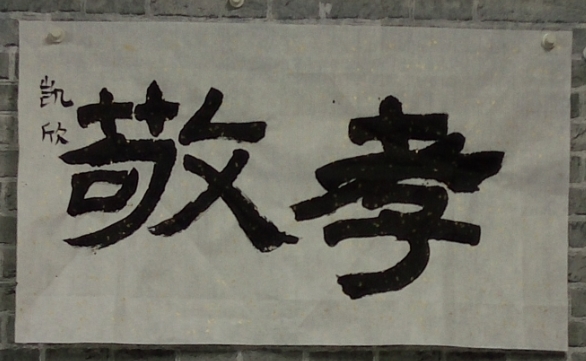 孝敬
凯欣